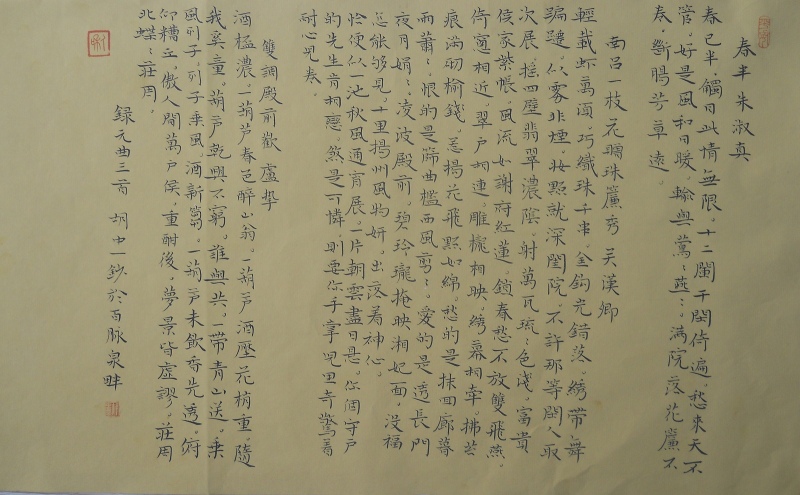 春半 朱淑真
春已半。觸目此情無限。十二闌干閒倚遍。愁來天不
管。好是風和日暖。輸與鶯鶯燕燕。滿院落花簾不
卷。斷腸芳草遠。
南呂一枝花 贈珠簾秀 關漢卿
輕裁蝦萬須。巧織珠千串。金鉤光錯落。繡帶舞
蹁躚。似霧非煙。妝點就深閨院。不許那等閒人取
次展。搖四壁翡翠濃陰。射萬瓦琉琉色淺。富貴
侯家紫帳。風流如謝府紅蓮。鎖春愁不放雙飛燕。
綺窗相近。翠戶相連。雕櫳相映。繡幕相牽。拂苔
痕滿砌榆錢。惹楊花飛點如綿。愁的是抹回廊暮
雨蕭蕭。恨的是篩曲檻西風剪剪。愛的是透長門
夜月娟娟。凌波殿前。碧玲瓏掩映湘妃面。沒福
怎能夠見。十里揚州風物妍。出落着神仙。
恰便似一池秋風通宵展。一片朝雲盡日懸。你個守戶
的先生肯相戀。煞是可憐。則要你手掌兒里奇擎着
耐心兒卷。
雙調殿前歡 盧摯
酒杯濃。一葫蘆春色醉山翁。一葫蘆酒壓花梢重。隨
我奚童。葫蘆乾興不窮。誰與共。一帶青山送。乘
風列子。列子乘風。酒新篘。一葫蘆未飲香先透。俯
仰糟丘。傲人間萬戶侯。重酣後。夢景皆虛謬。莊周
化蝶。蝶化莊周。
錄元曲三首 胡中一鈔於百脈泉畔